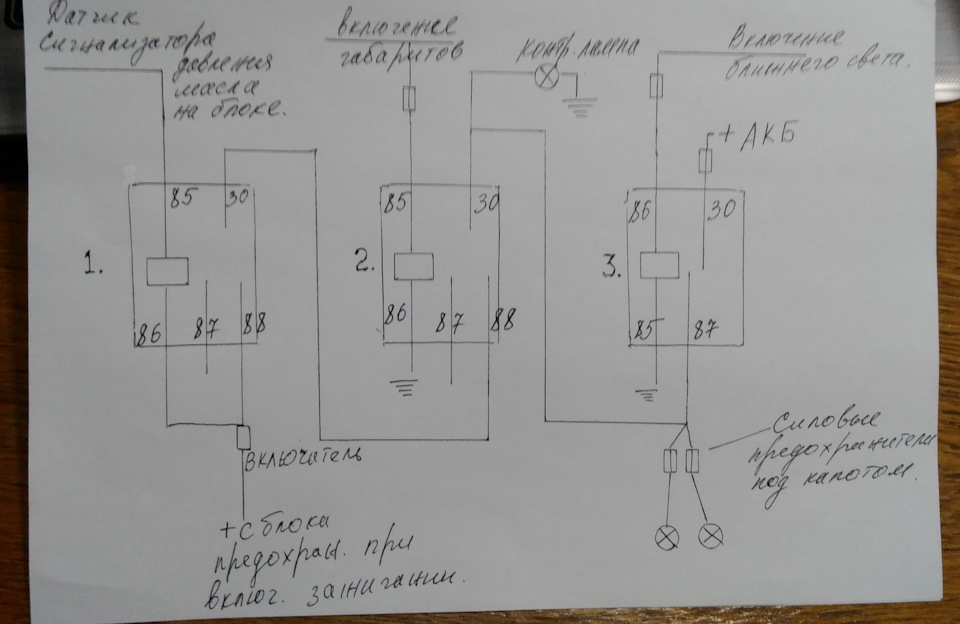 Датчик
Сигнализатора
давления
масла
на блоке.
включение
габаритов
контр лампа
Включение
ближнего света.
+ АКБ
85
30
85
30
86
30
1.
2.
3.
86
87
88
86
87
88
85
87
Включатель
+ с блока
предохран. при
включ. зажигании.
Силовые
предохранители
под капотом.